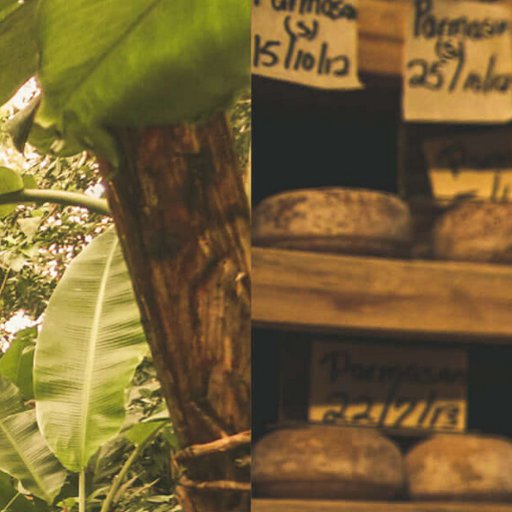 Parmasan
(s)
15/10/12
Parmasan
(s)
25/10/12
Parmasan
22/7/13